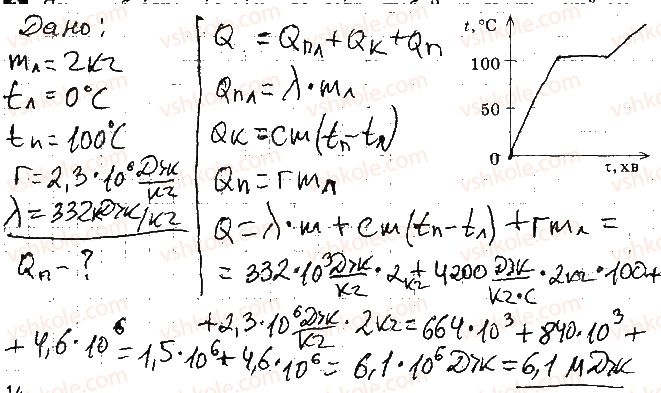 Дано:
m_л = 2 кг
t_л = 0°C
t_п = 100°C
r = 2,3·10⁶ Дж/кг
λ = 332 кДж/кг
Q_п - ?
Q = Q_пл + Q_к + Q_п
Q_пл = λ·m_л
Q_к = cm(t_п - t_л)
Q_п = rm_л
Q = λ·m + cm(t_п - t_л) + rm_л =
= 332·10³ Дж/кг · 2 кг + 4200 Дж/кг·С · 2 кг · 100 +
+ 2,3·10⁶ Дж/кг · 2 кг = 664·10³ + 840·10³ +
+ 4,6·10⁶ = 1,5·10⁶ + 4,6·10⁶ = 6,1·10⁶ Дж = 6,1 МДж
t, °C
100
50
0
τ, хв
vshkole.com